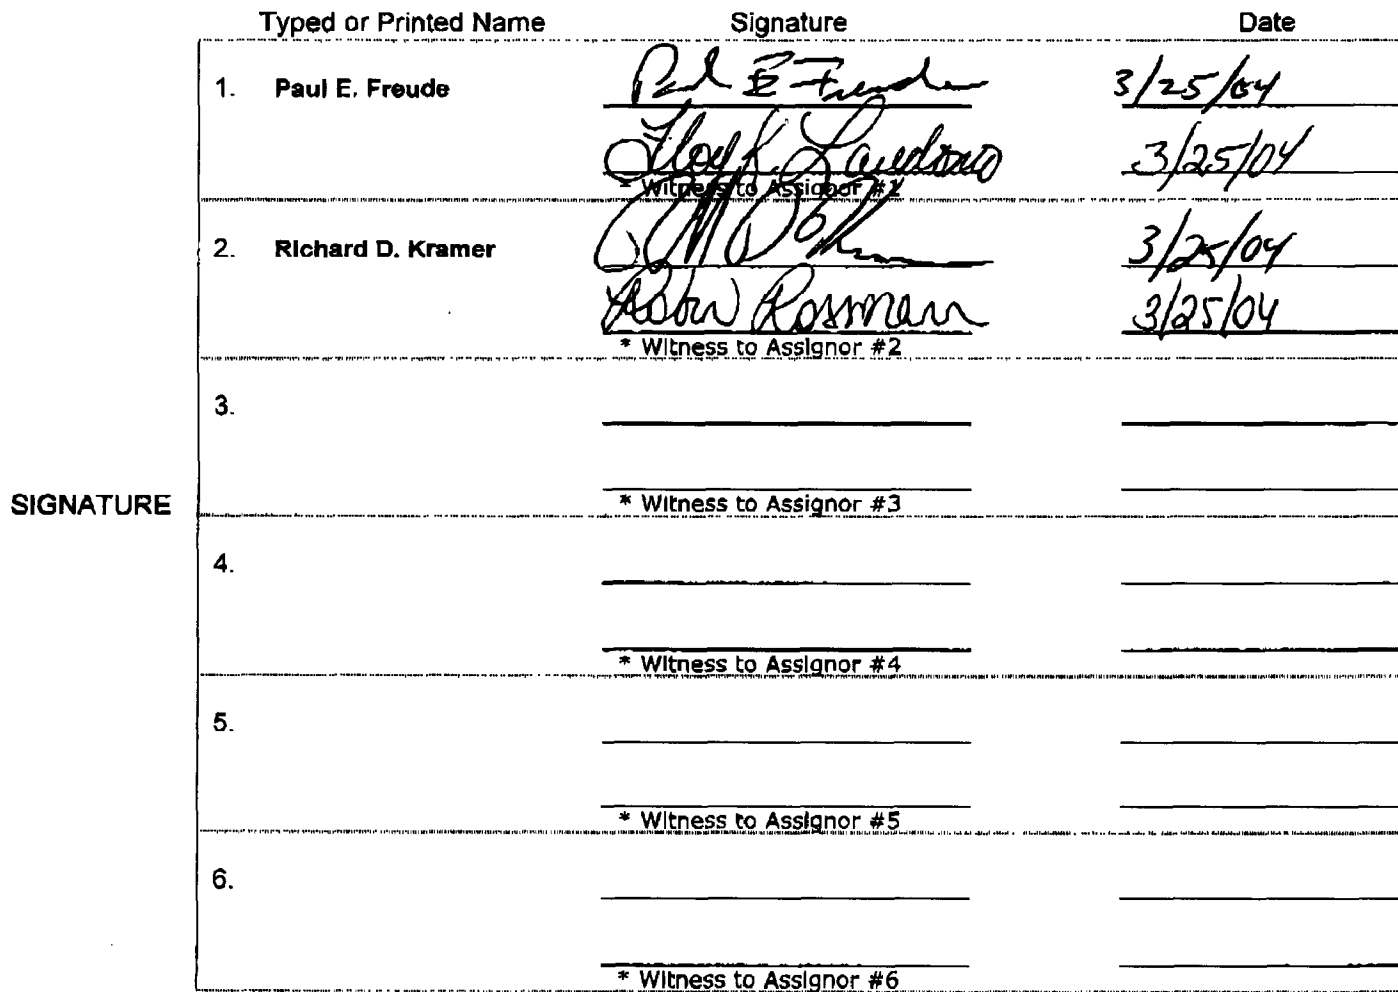 Typed or Printed Name Signature Date
1. Paul E. Freude Paul E Freude 3/25/04
3/25/04
* Witness to Assignor #1
2. Richard D. Kramer 3/25/04
Robin Rossmann 3/25/04
* Witness to Assignor #2
3.
* Witness to Assignor #3
SIGNATURE
4.
* Witness to Assignor #4
5.
* Witness to Assignor #5
6.
* Witness to Assignor #6